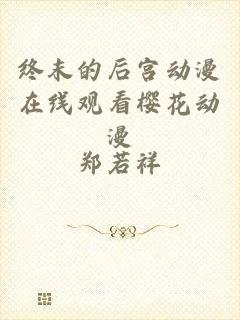 终末的后宫动漫
在线观看樱花动
漫
郑若祥